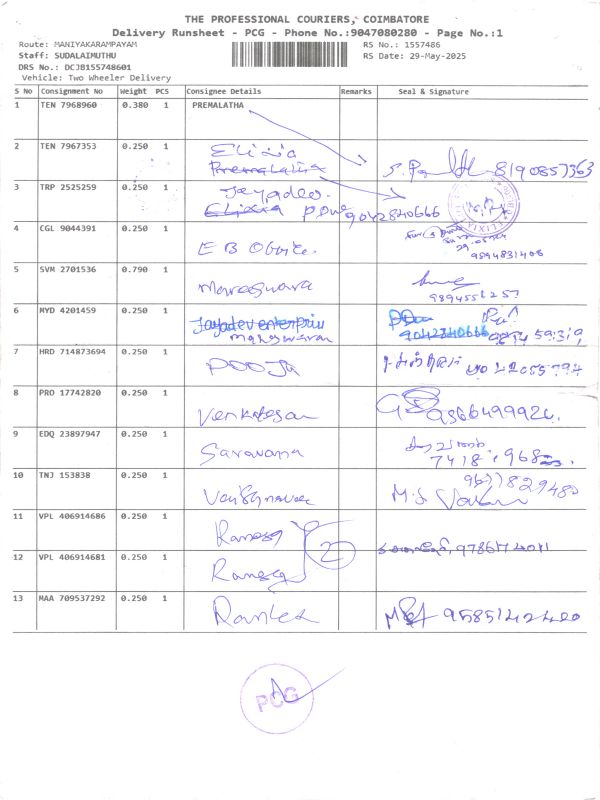 THE PROFESSIONAL COURIERS, COIMBATORE
Delivery Runsheet - PCG - Phone No.:9047080280 - Page No.:1
Route: MANIYAKARAMPAYAM
RS No.: 1557486
Staff: SUDALAIMUTHU
RS Date: 29-May-2025
DRS No.: DCJB155748601
Vehicle: Two Wheeler Delivery
S No Consignment No Weight PCS Consignee Details Remarks Seal & Signature
1 TEN 7968960 0.380 1 PREMALATHA
2 TEN 7967353 0.250 1 Elixia
Premalatha 8190857363
3 TRP 2525259 0.250 1 Jayadev.
Elixia 9042840666
4 CGL 9044391 0.250 1 E B Office.
9894831408
5 SVM 2701536 0.790 1 Mareswara
9894551257
6 MYD 4201459 0.250 1 Jayadev enterpriu
Maheswaran 9042840666
7 HRD 714873694 0.250 1 POOJA
8 PRO 17742820 0.250 1 Venkatesan
9 EDQ 23897947 0.250 1 Saravana
10 TNJ 153838 0.250 1 Vaishnavee 9677829480
11 VPL 406914686 0.250 1 Ramesg
2
12 VPL 406914681 0.250 1 Ramesg
13 MAA 709537292 0.250 1 9585142420
PCG